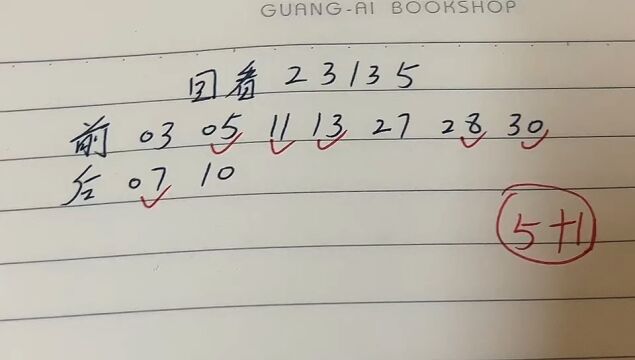 GUANG-AI BOOKSHOP
回看 23135
前 03 05 11 13 27 28 30
后 07 10
5+1